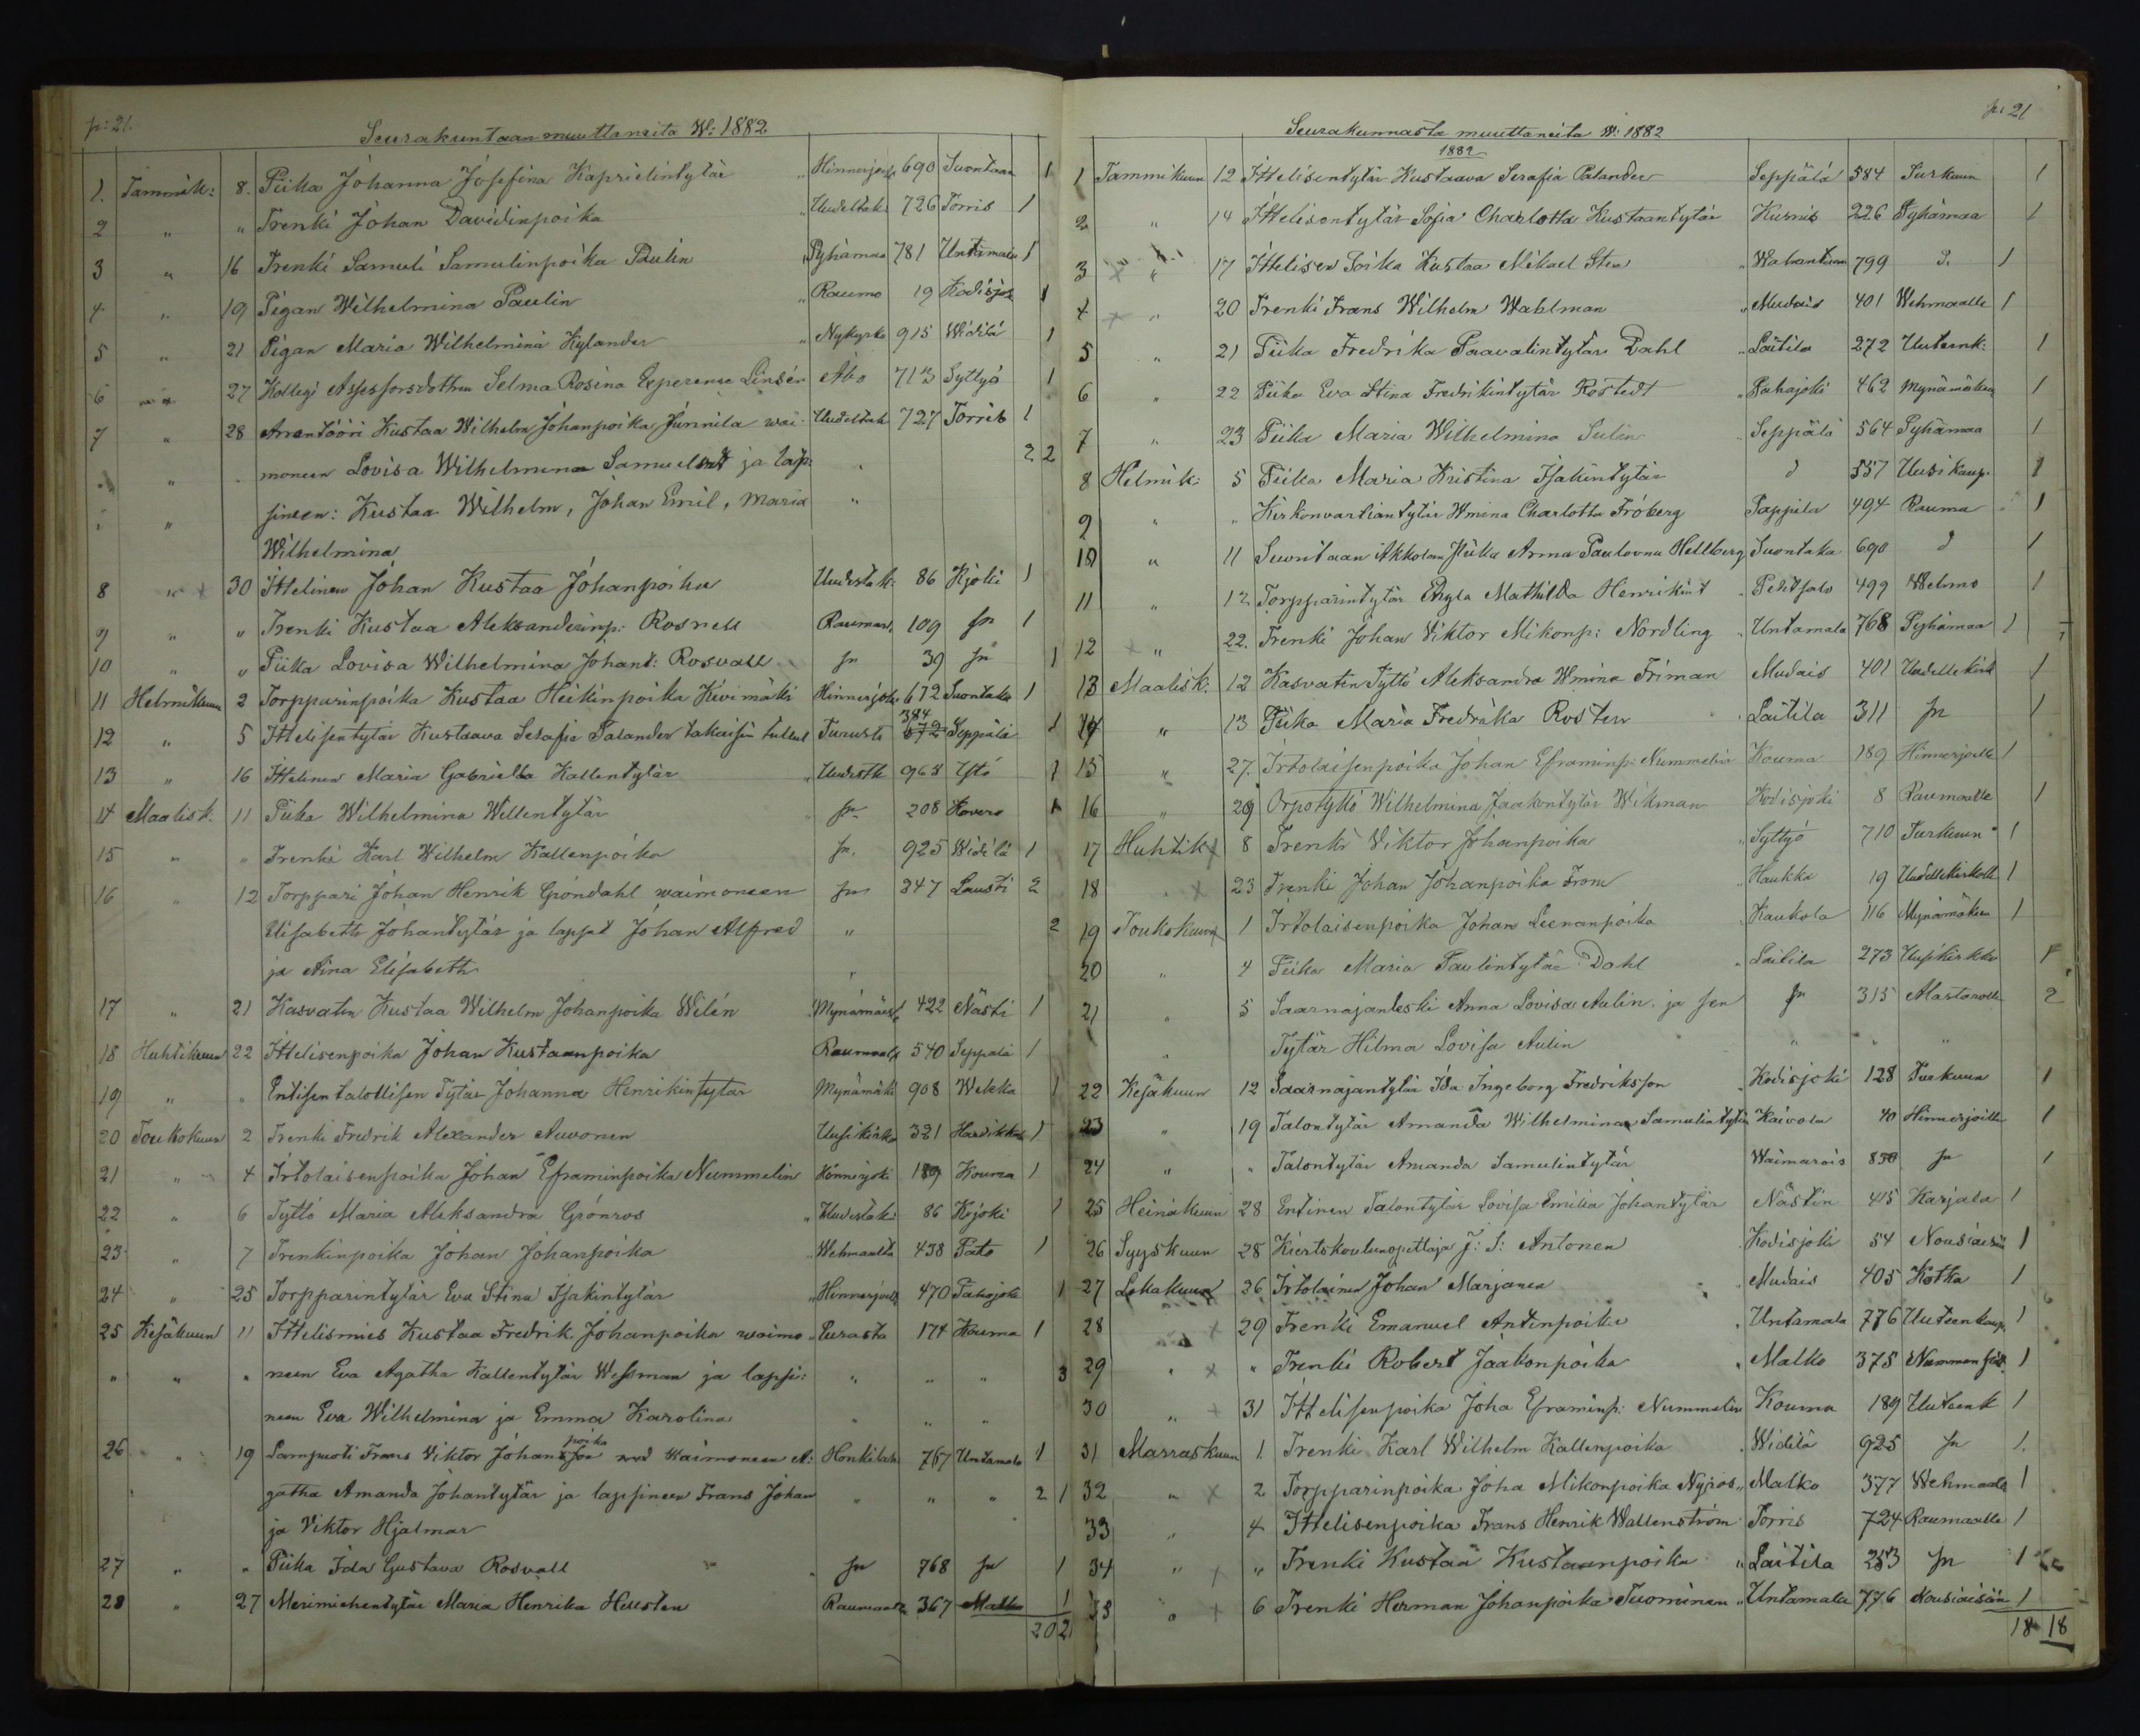 p: 21.
Seurakuntaan muuttaneita W: 1882
1. Tammik: 8. Piika Johanna Josefina Kaprielintytär " Hinnerjoelt 690 Suontaan 1
2 " " Trenki Johan Davidinpoika " Uudeltak: 726 Torris 1
3 " 16 Trenki Samuli Samulinpoika Paulin " Pyhämaa 781 Untamala 1
4 " 19 Pigan Wilhelmina Paulin " Raumo 19 Kodisjok 1
5 " 21 Pigan Maria Wilhelmina Kylander " Nykyrko 915 Widilä 1
6 " 27 Kollegi Assessorsdottren Selma Rosina Linsén Åbo 713 Syttyö 1
7 " 28 Arrentööri Kustaa Wilhelm Johanpoika Junnila wai- Uudeltak 727 Torris 1
" moneen Lovisa Wilhelmina Samuelint ja lap: " 2 2
" sineen: Kustaa Wilhelm, Johan Emil, Maria "
Wilhelmina
8 " x 30 Ittelinen Johan Kustaa Johanpoika Uudestak: 86 Kjoki 1
9 " " Trenki Kustaa Aleksanderinp: Rosnell Raumast 109 sn 1
10 " " Piika Lovisa Wilhelmina Johant: Rosvall sn 39 sn 1
11 Helmikuun 2 Torpparinpoika Kustaa Heikinpoika Kivimäki Hinnerjoki 672 Suontaka 1
12 " 5 Ittelisentytär Kustaava Serafia Palander takaisin tullut Turusta 384 672 Seppälä 1
13 " 16 Ittelinen Maria Gabriella Kallentytär " Uudestk 963 Ytö 1
14 Maalisk: 11 Piika Wilhelmina Willentytär " sn 208 Kovero 1
15 " " Trenki Karl Wilhelm Kallenpoika sn. 925 Widilä 1
16 " 12 Torppari Johan Henrik Gröndahl waimoneen sn 247 Lausti 2
Elisabeth Johantytär ja lapset Johan Alfred " 2
ja Aina Elisabeth "
17 " 21 Kasvatin Kustaa Wilhelm Johanpoika Wilén Mynämäeste 422 Nästi 1
18 Huhtikuun 22 Ittelisenpoika Johan Kustaanpoika Raumaalt 540 Seppälä 1
19 " " Entisen talollisen Tytär Johanna Henrikintytär Mynämäki 908 1
20 Toukokuun 2 Trenki Fredrik Alexander Auvonen Uusikirko 321 1
21 " 4 Irtolaisenpoika Johan Eframinpoika Nummelin Hinnerjoki 189 Kouma 1
22 " 6 Tyttö Maria Aleksandra Grönroos " Uudestak: 86 Kjoki 1
23 " 7 Trenkinpoika Johan Johanpoika " Wehmaalta 438 Pato 1
24 " 25 Torpparintytär Eva Stina Isakintytär " Hinnerjoelt 470 Pahojoki 1
25 Kesäkuun 11 Ittelismies Kustaa Fredrik Johanpoika waimo " Eurasta 174 Kouma 1
" " " neen Eva Agatha Kallentytär Wessman ja lapsi: " " " 3
neen Eva Wilhelmina ja Emma Karolina " " "
26 " 19 Lampuoti Frans Viktor Johan poika waimoneen A: Honkilahti 767 Untamala 1
gatha Amanda Johantytär ja lapsineen Frans Johan " " " 2 1
ja Viktor Hjalmar
27 " " Piika Ida Gustava Rosvall " sn 768 sn 1
28 " 27 Merimiehentytär Maria Henrika Hellsten Raumaalta 367 Malko 1
20 21
p: 21
Seurakunnasta muuttaneita W: 1882
1882
1 Tammikuun 12 Ittelisentytär Kustaava Serafia Palander Seppälä 584 Turkuun 1
2 " 14 Ittelisentytär Sofia Charlotta Kustaantytär Kusnis 226 Pyhämaa 1
3 x " 17 Ittelisen Poika Kustaa Mikael Sten " Wahantaan 799 d. 1
4 x " 20 Trenki Frans Wilhelm Wahlman " Mudais 401 Wehmaalle 1
5 " 21 Piika Fredrika Paavalintytär Dahl " Laitila 272 Uuteenk: 1
6 " 22 Piika Eva Stina Fredrikintytär Rostedt " Pahajoki 462 Mynämäkeen 1
7 " 23 Piika Maria Wilhelmina Sulin " Seppälä 564 Pyhämaa 1
8 Helmik: 5 Piika Maria Kristina Isakintytär d 557 Uusikaup. 1
9 " " Kirkonvartiantytär Wmina Charlotta Fröberg Pappila 494 Rauma 1
10 " 11 Suontaan Akkolan Piika Anna Paulovna Hellberg Suontaka 690 d 1
11 " 12 Torpparintytär Mathilda Henrikint " 499 Wehmo 1
12 x " 22. Trenki Johan Viktor Mikonp: Nordling " Untamala 768 Pyhämaa 1
13 Maalisk: 12 Kasvatin Tyttö Aleksandra Wmina Friman Mudais 401 Uudellekirk 1
14 " 13 Piika Maria Fredrika Rosten " Laitila 311 sn 1
15 " 27. Irtolaisenpoika Johan Eframinp: Nummelin Kouma 189 Hinnerjoelle 1
16 " 29 Orpotyttö Wilhelmina Jaakontytär Wikman Kodisjoki 8 Raumaalle 1
17 Huhtik x 8 Trenki Viktor Johanpoika " Syttyö 710 Turkuun 1
18 " x 23 Trenki Johan Johanpoika From " Haukka 19 Uudellekirkolle 1
19 Toukokuun 1 Irtolaisenpoika Johan Leenanpoika " Kaukola 116 Mynämäkeen 1
20 " 4 Piika Maria Paulintytär Dahl " Laitila 273 Uusikirkko 1
21 " 5 Saarnajanleski Anna Lovisa Aulin ja sen sn 315 Alastarolle 2
" Tytär Hilma Lovisa Aulin " " "
22 Kesäkuun 12 Saarnajantytär Ida Ingeborg Fredriksson " Kodisjoki 128 Turkuun 1
23 " 19 Talontytär Amanda Wilhelmina Samulintytär Kaivola 70 Hinnerjoelle 1
24 " " Talontytär Amanda Samulintytär Waimarois 850 sn 1
25 Heinäkuun 28 Entinen Talontytär Lovisa Emilia Johantytär Nästin 415 Karjala 1
26 Syyskuun 28 Kiertokoulunopettaja J: S: Antonen Kodisjoki 54 Nousiaisiin 1
27 Lokakuun 26 Irtolainen Johan Marjanen " Mudais 405 Kotka 1
28 " x 29 Trenki Emanuel Antinpoika " Untamala 776 Uuteenkaup. 1
29 " x " Trenki Robert Jaakonpoika " Malko 375 1
30 " x 31 Ittelisenpoika Joha Eframinp: Nummelin Kouma 189 Uuteenk 1
31 Marraskuun 1. Trenki Karl Wilhelm Kallenpoika " Widilä 925 sn 1.
32 " x 2 Torpparinpoika Joha Mikonpoika Nyroos " Malko 377 Wehmaalle 1
33 " 4 Ittelisenpoika Frans Henrik Wallenström Torris 724 Raumaalle 1
34 " x " Trenki Kustaa Kustaanpoika " Laitila 253 sn 1
35 " x 6 Trenki Herman Johanpoika Tuominen " Untamala 776 Nousiaisiin 1
18 18